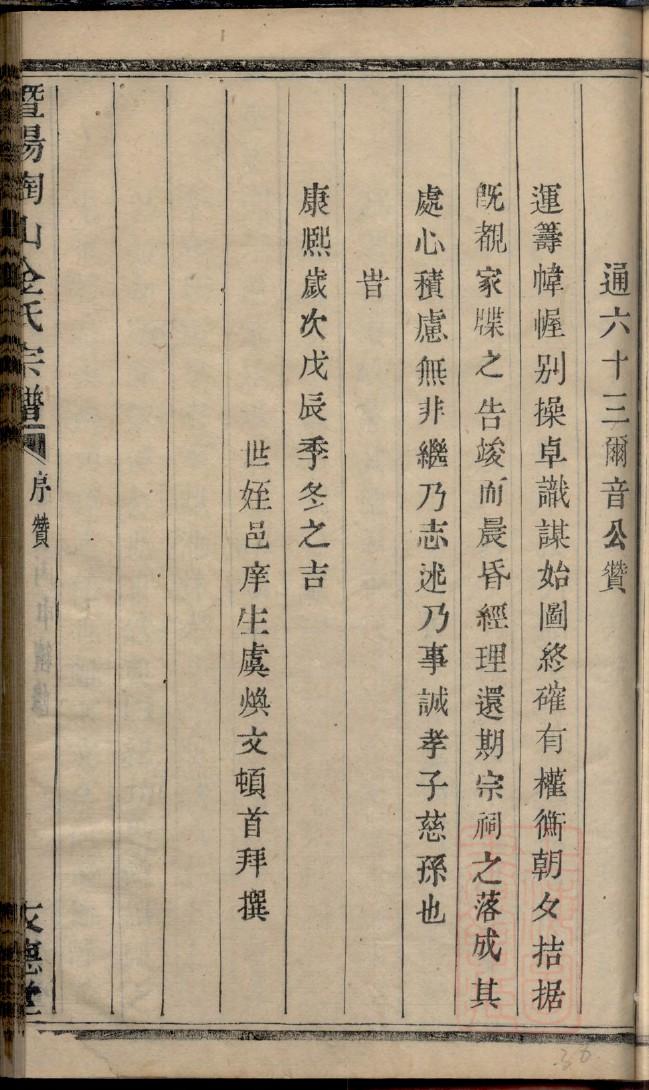 通六十三爾音公贊
運籌幃幄别操卓識謀始圖終確有權衡朝夕拮据
旣覩家牒之告竣而晨昏經理還期宗祠之落成其
處心積慮無非繼乃志述乃事誠孝子慈孫也
旹
康熙歲次戊辰季冬之吉
世姪邑庠生虞煥文頓首拜撰
暨陽陶山金氏宗譜
序贊
文德堂
38